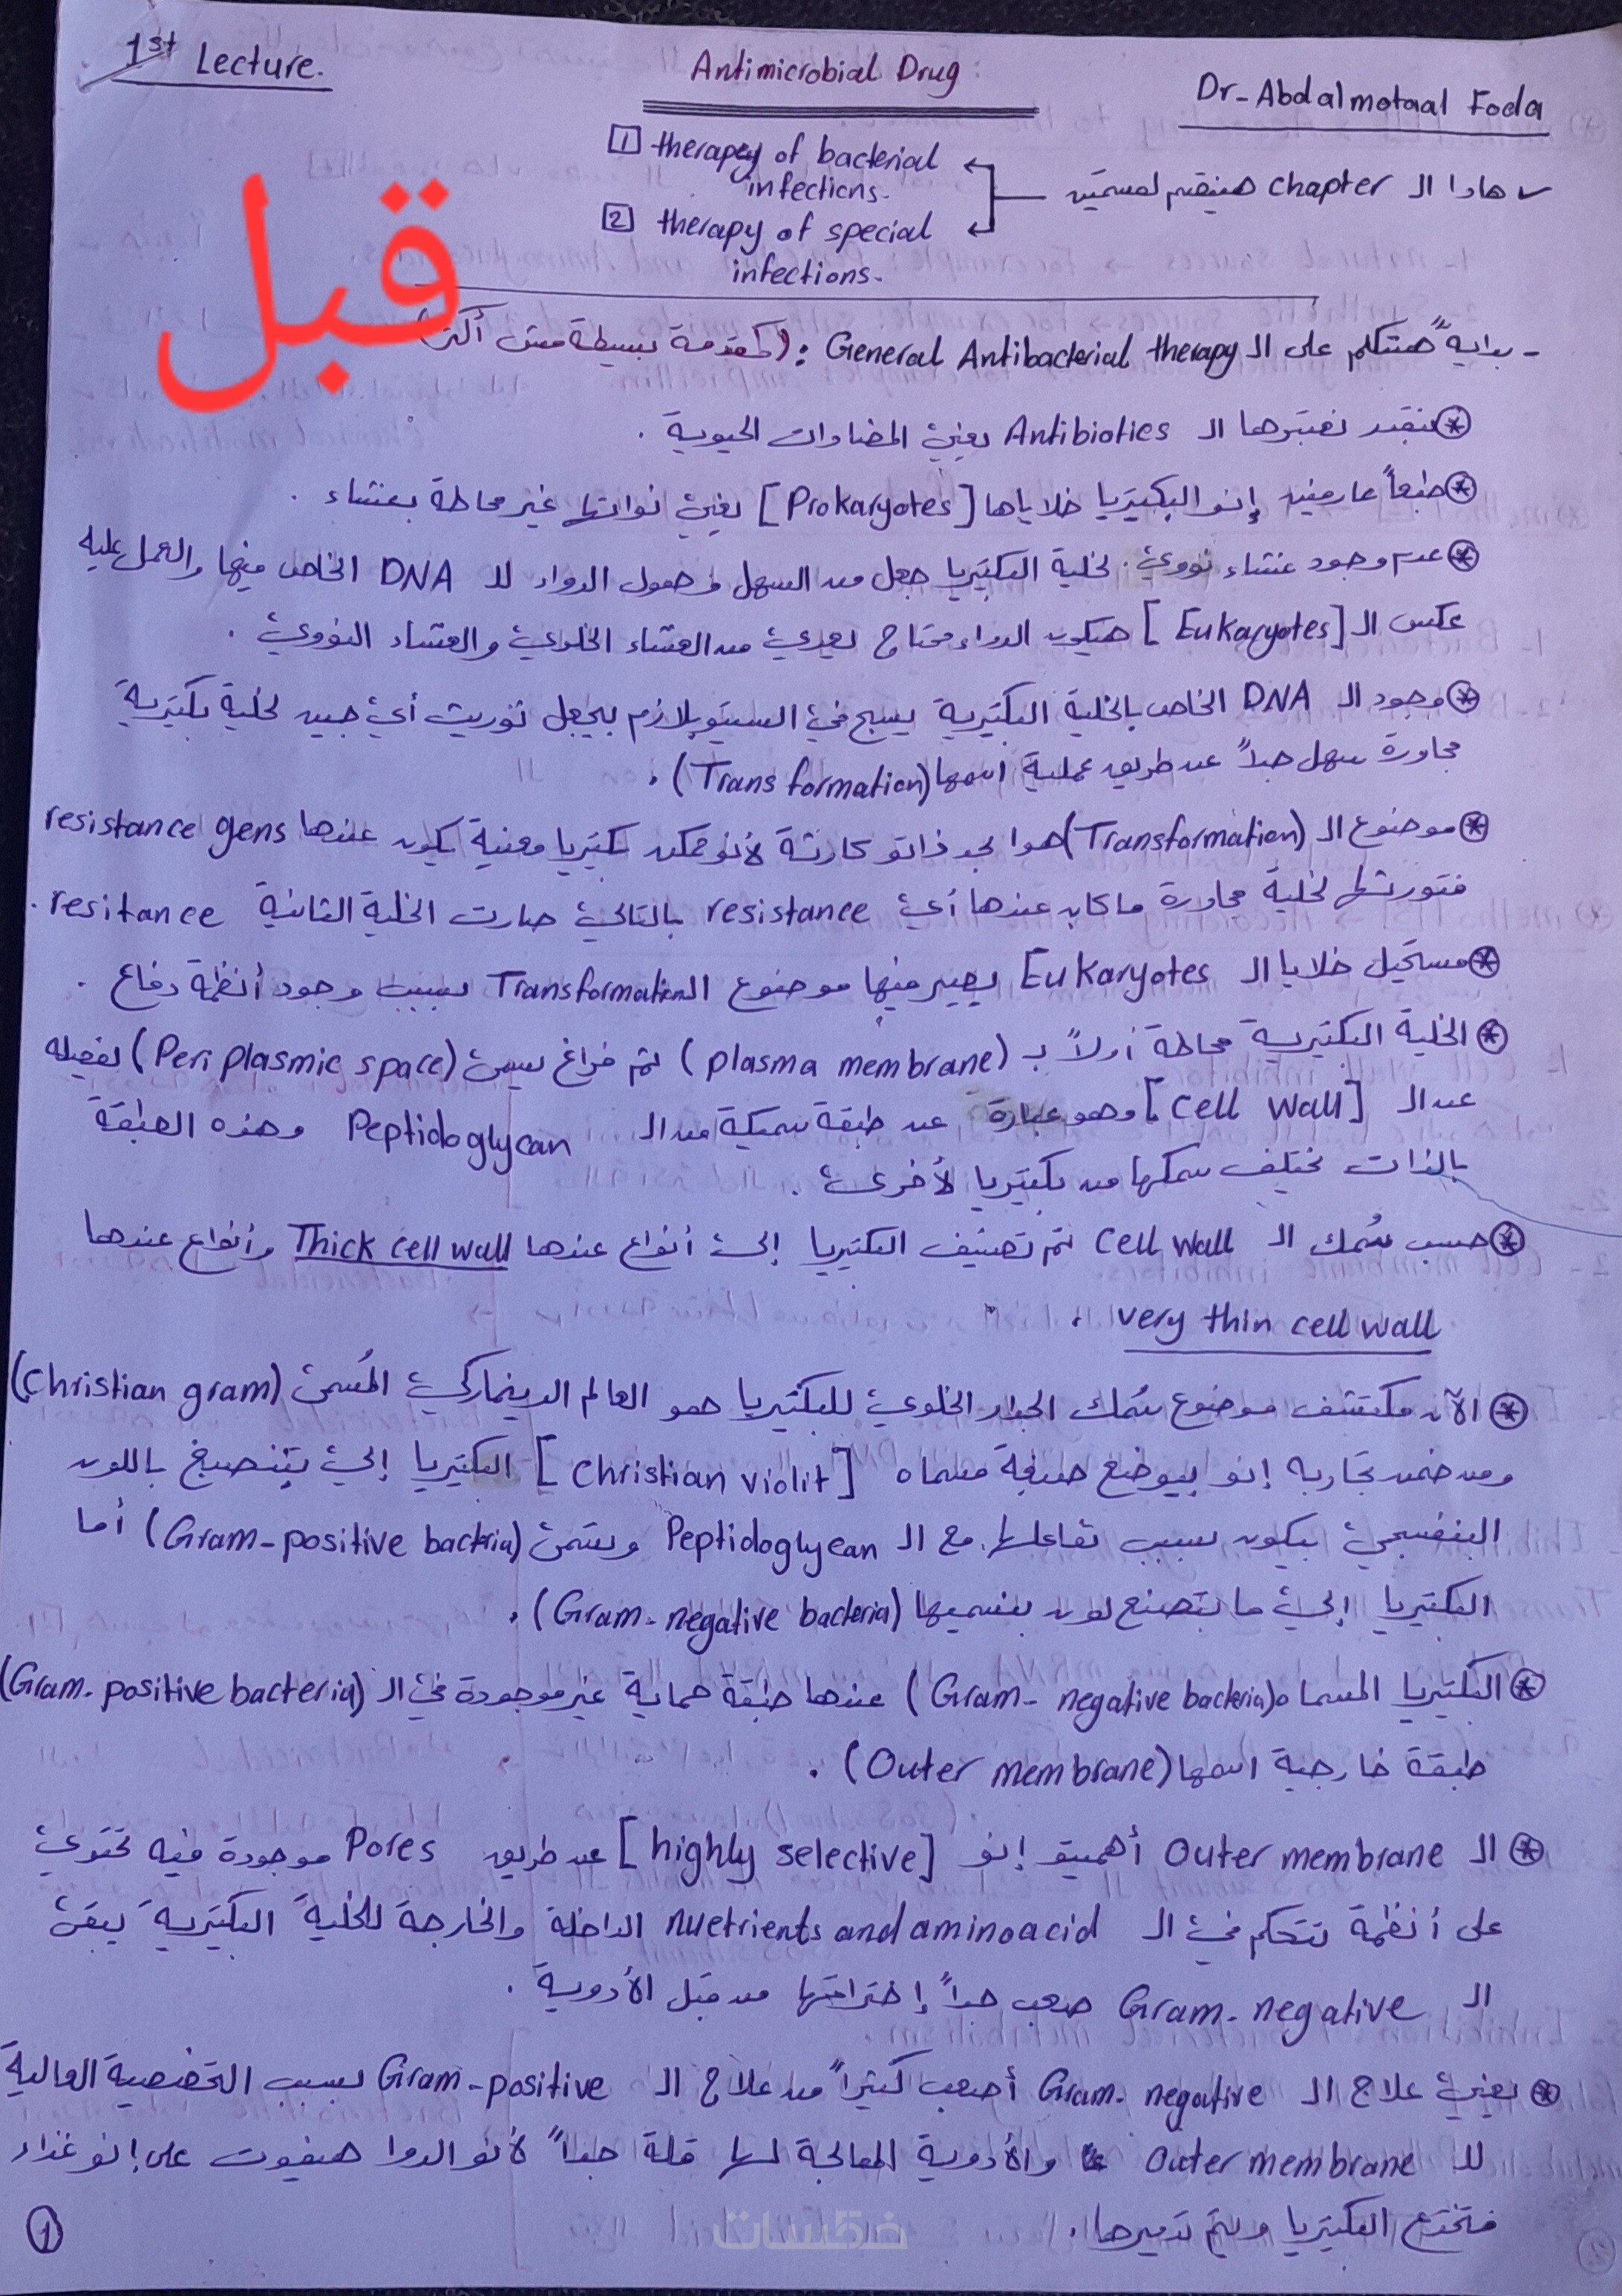 1st Lecture.
Antimicrobial Drug :
Dr-Abdalmotaal Foda
قبل
✓ هادا الـ chapter هينقسم لقسمين
1 therapey of bacterial
infections.
2 therapy of special
infections.
- بدايةً هنتكلم على الـ General Antibacterial therapy : (كمقدمة بسيطة مش أكتر)
* نقدر نعتبرها الـ Antibiotics يعني المضادات الحيوية .
* طبعاً عارفين إنو البكتيريا خلاياها [Prokaryotes] يعني نواتها غير محاطة بغشاء .
* عدم وجود غشاء نووي لخلية البكتيريا جعل من السهل وصول الدواء للـ DNA الخاص فيها والعمل عليه
عكس الـ [Eukaryotes] هيكون الدواء محتاج يعدي من الغشاء الخلوي والغشاء النووي .
* وجود الـ DNA الخاص بالخلية البكتيرية يسبح في السيتوبلازم بيجعل توريث أي جين لخلية بكتيرية
مجاورة سهل جداً عن طريق عملية اسمها (Transformation) .
* موضوع الـ (Transformation) هوا بحد ذاتو كارثة لأنو ممكن بكتيريا معينة يكون عندها resistance gens
فتورثها لخلية مجاورة ما كان عندها أي resistance بالتالي صارت الخلية الثانية resitance .
* مستحيل خلايا الـ Eukaryotes يصير فيها موضوع الـ Transformation بسبب وجود أنظمة دفاع .
* الخلية البكتيرية محاطة أولاً بـ (plasma membrane) ثم فراغ يسمى (Periplasmic space) يفصله
عن الـ [cell wall] وهو عبارة عن طبقة سميكة من الـ Peptidoglycan وهذه الطبقة
بالذات يختلف سمكها من بكتيريا لأخرى .
* حسب سُمك الـ cell wall تم تصنيف البكتيريا إلى أنواع عندها Thick cell wall وأنواع عندها
very thin cell wall .
* الآن مكتشف موضوع سُمك الجدار الخلوي للبكتيريا هو العالم الدينماركي المُسمى (Christian gram)
ومن ضمن تجاربه إنو بيوضع صبغة مسماه [Christian violit] البكتيريا إلي بتنصبغ باللون
البنفسجي بيكون بسبب تفاعلها مع الـ Peptidoglycan وتسمى (Gram-positive bactria) أما
البكتيريا إلي ما بتصبغ لون بنسميها (Gram-negative bacteria) .
* البكتيريا المسماه (Gram-negative bacteria) عندها طبقة حماية غير موجودة في الـ (Gram-positive bacteria)
طبقة خارجية اسمها (Outer membrane) .
* الـ Outer membrane أهميتو إنو [highly selective] عن طريق Pores موجودة فيه تحتوي
على أنظمة تتحكم في الـ nuetrients and aminoacid الداخلة والخارجة للخلية البكتيرية يبقى
الـ Gram-negative صعب جداً إختراقها من قبل الأدوية .
* يعني علاج الـ Gram-negative أصعب كتيراً من علاج الـ Gram-positive بسبب التخصصية العالية
للـ Outer membrane والأدوية المعالجة لها قلة جداً لأنو الدوا هيفوت على إنو غذاء
فتخدع البكتيريا ويتم تدميرها .
1
خمسات